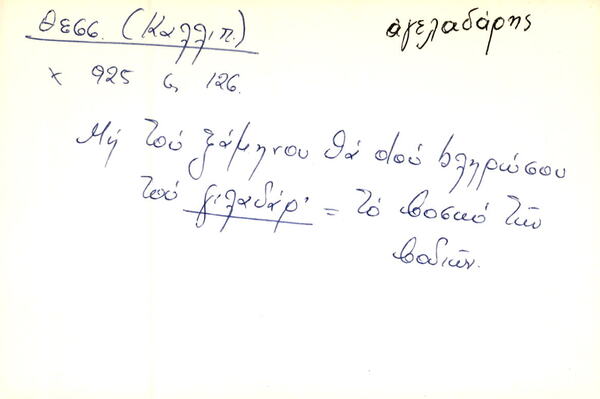 Θεσσ. (Καλλιπ.)
ἀγελαδάρης
χ 925 σ, 126.
Μή τού ξάμηνου θά σού πληρώσου
τού γιλαδάρ' = τό βοσκό τῶν
βοδιῶν.